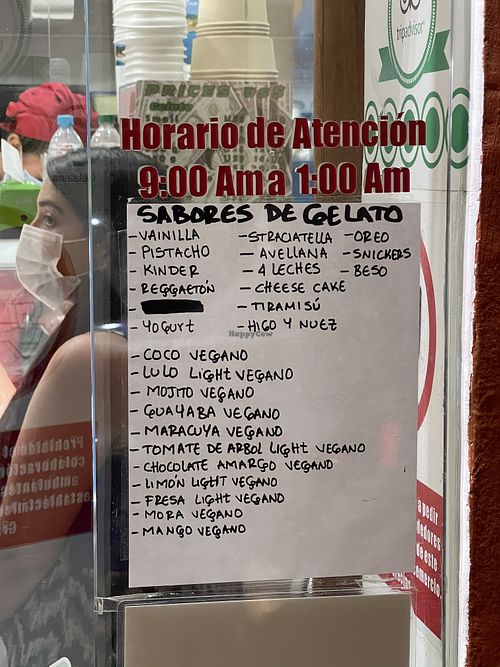 tripadvisor
PRICES
Gelato
Horario de Atención
9:00 Am a 1:00 Am
SABORES DE GELATO
- VAINILLA - STRACIATELLA - OREO
- PISTACHO - AVELLANA - SNICKERS
- KINDER - 4 LECHES - BESO
- REGGAETÓN - CHEESE CAKE
- - TIRAMISÚ
- YOGURT - HIGO Y NUEZ
- COCO VEGANO
- LULO LIGHT VEGANO
- MOJITO VEGANO
- GUAYABA VEGANO
- MARACUYA VEGANO
- TOMATE DE ARBOL LIGHT VEGANO
- CHOCOLATE AMARGO VEGANO
- LIMÓN LIGHT VEGANO
- FRESA LIGHT VEGANO
- MORA VEGANO
- MANGO VEGANO
HappyCow
a pedir
dedores
de este
omercio.